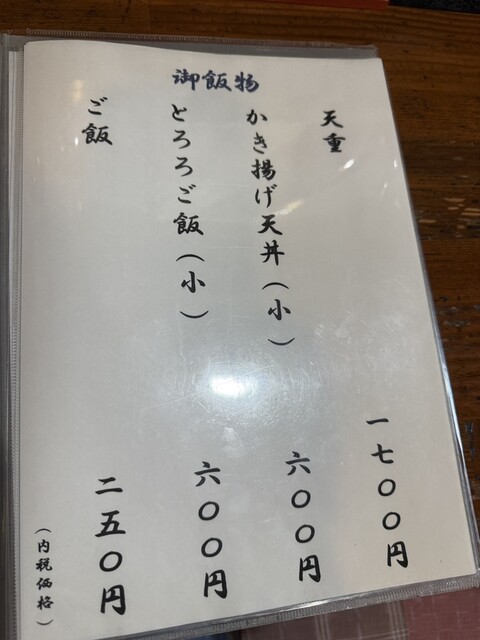 御飯物
天重
一七〇〇円
かき揚げ天丼(小)
六〇〇円
とろろご飯(小)
六〇〇円
ご飯
二五〇円
(内税価格)